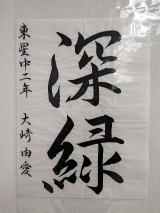 深緑
東星中二年 大崎由愛